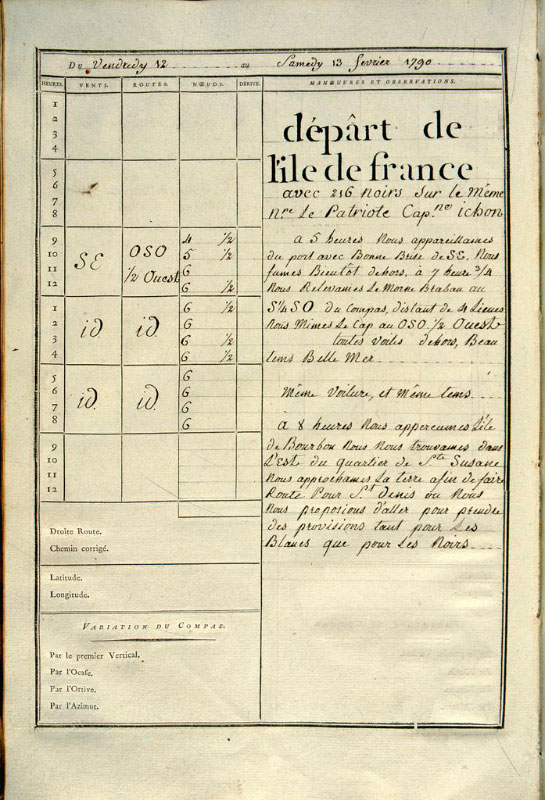 Du Vendredy 12 au Samedy 13 fevrier 1790
HEURES. VENTS. ROUTES. NŒUDS. DÉRIVE. MANŒUVRES ET OBSERVATIONS.
1
2
3
4
5
6
7
8
9 4 ½
10 SE OSO 5 ½
11 ½ Ouest 6
12 6
1 6 ½
2 id id 6
3 6 ½
4 6 ½
5 6
6 id. id. 6
7 6
8 6
9
10
11
12
départ de
l'ile de france
avec 216 noirs Sur le Même
Nre Le Patriote Cap.ne ichon
a 5 heures Nous appareillames
du port avec Bonne Brise de SE. Nous
fumes Bientôt dehors, à 7 heure ¾
Nous Relevames Le Morne Brabau au
S¼SO du Compas, distant de 4 Lieues
Nous Mimes Le Cap au OSO. ½ Ouest
toutes voiles dehors, Beau
tems Belle Mer
Même Voilure, et Même tems
a 8 heures Nous apperceumes L'ile
de Bourbon Nous Nous trouvames dans
L'Est du quartier de Ste Susane
Nous approchames La terre afin de faire
Route Pour St Denis ou Nous
Nous proposions d'aller pour prendre
des provisions tant pour Les
Blancs que pour Les Noirs
Droite Route.
Chemin corrigé.
Latitude.
Longitude.
VARIATION DU COMPAS.
Par le premier Vertical.
Par l'Ocase.
Par l'Ortive.
Par l'Azimut.